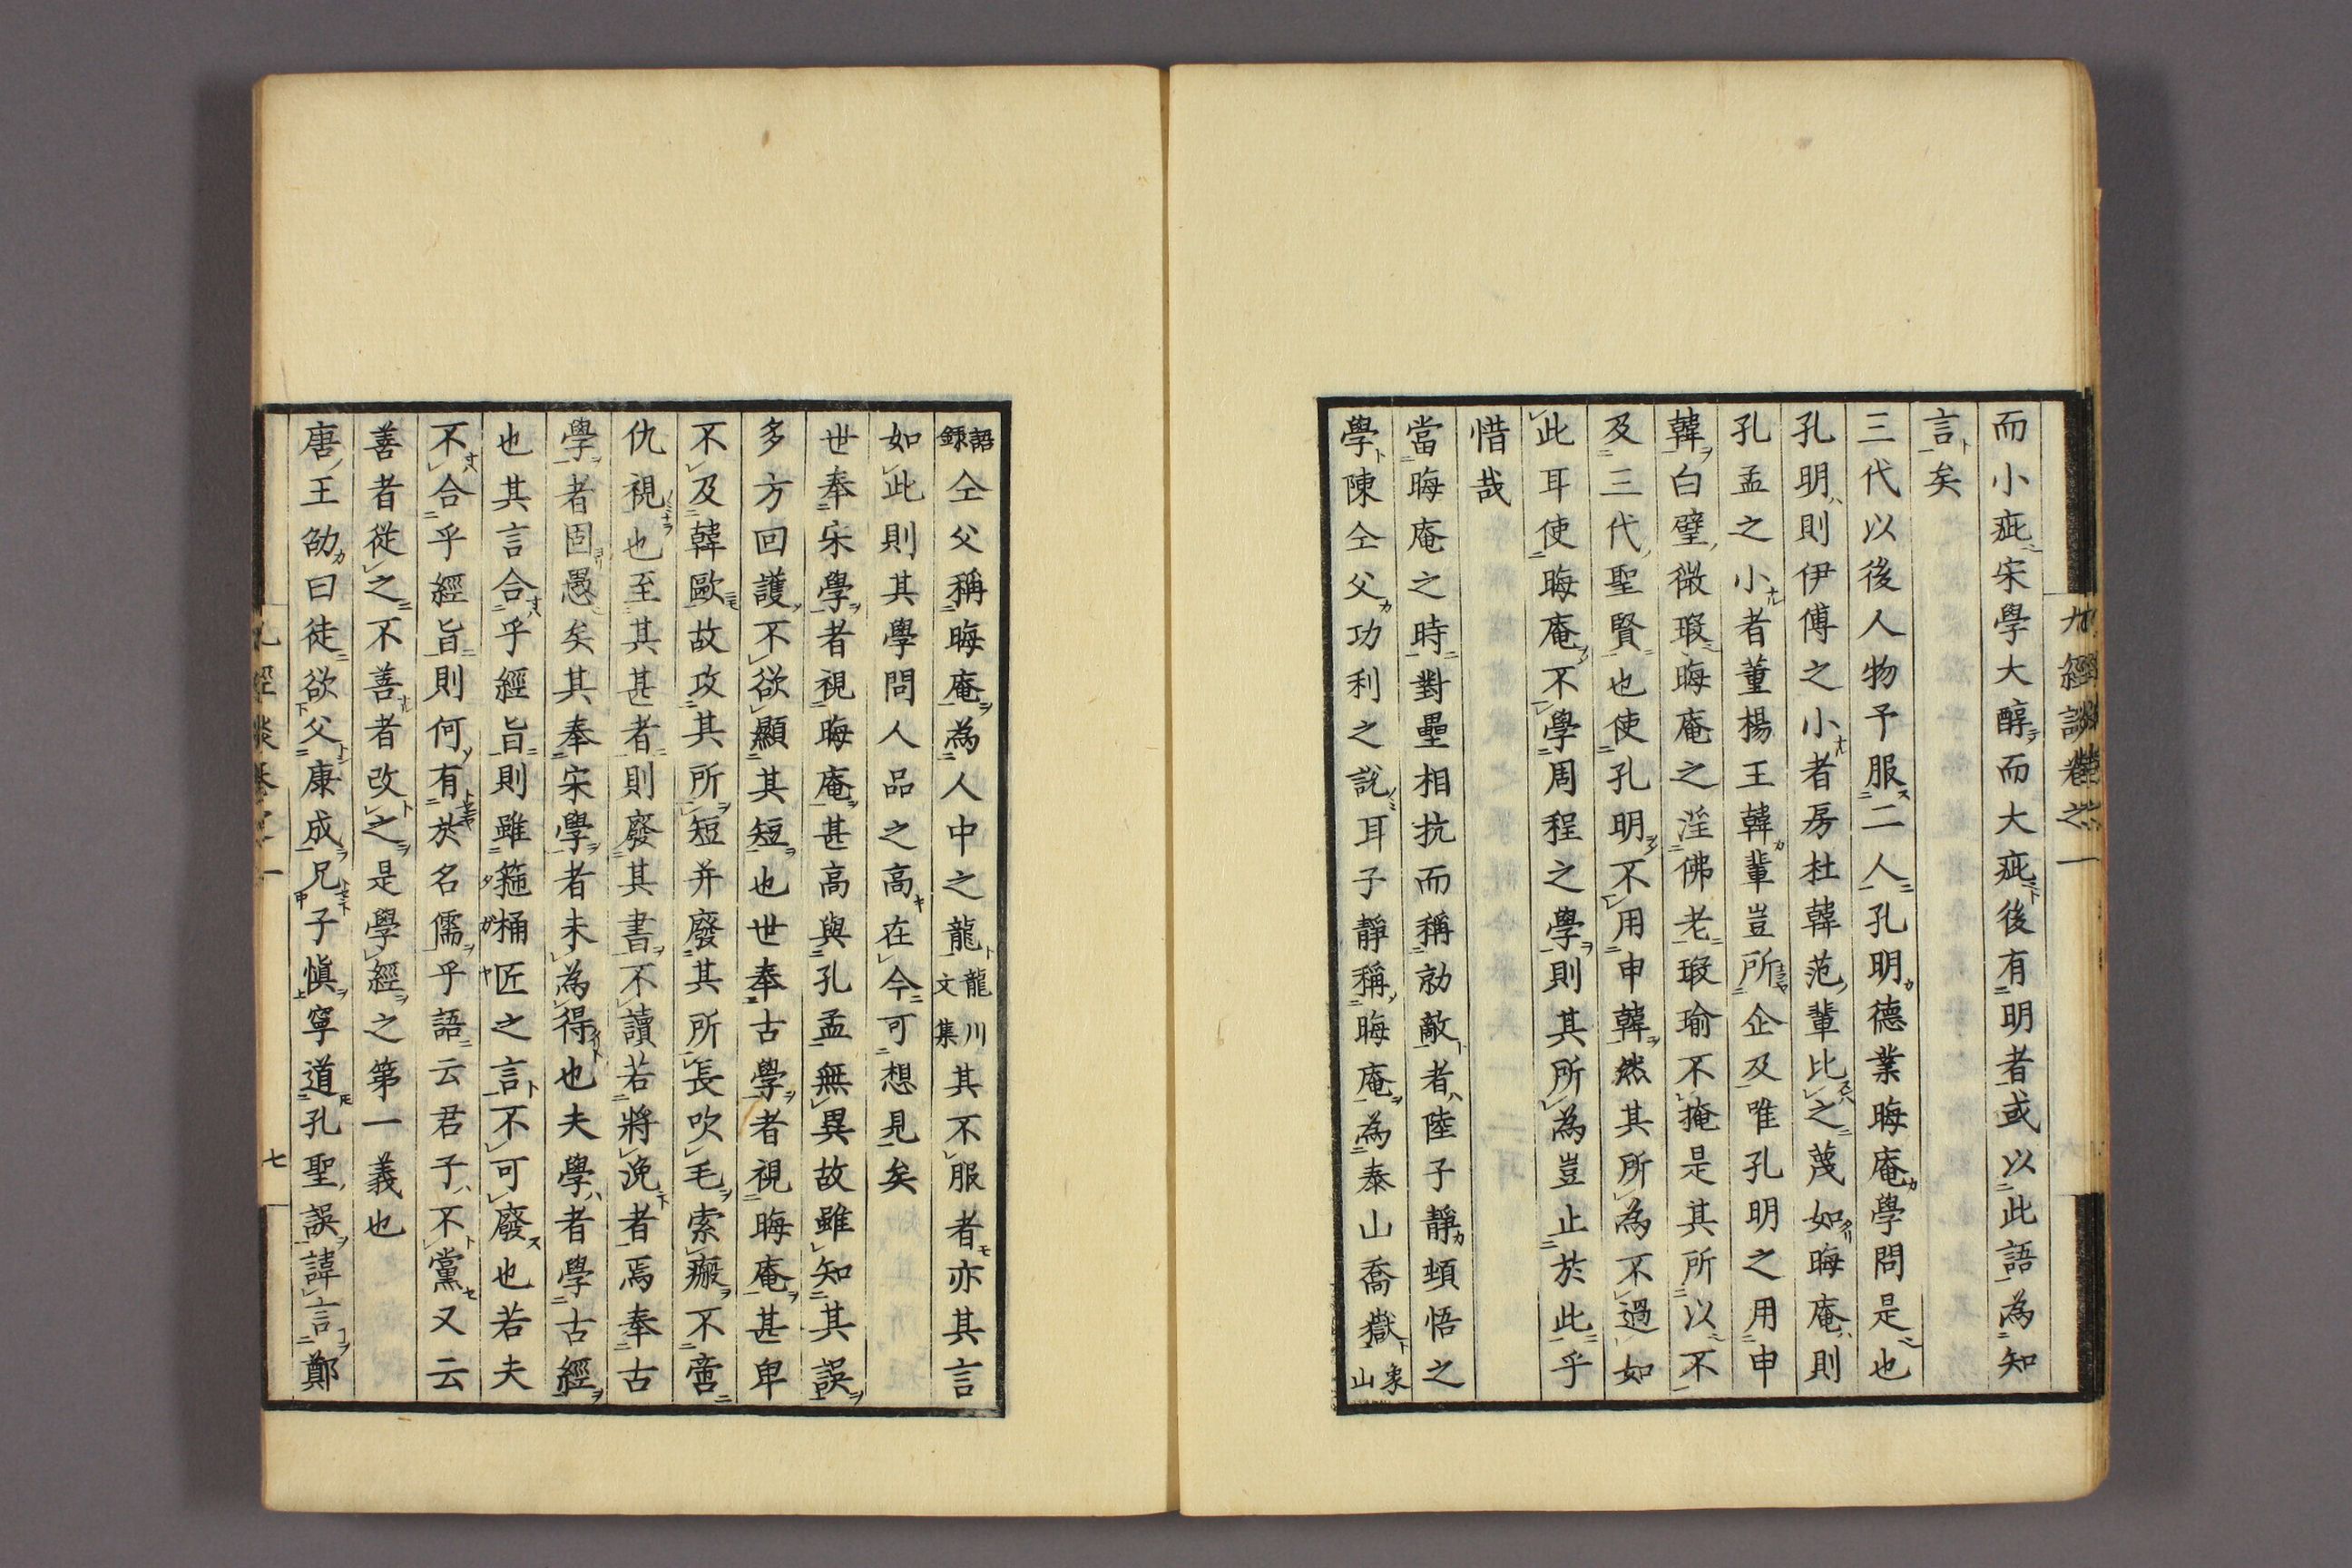 九經談卷之一
而小疵宋學大醇而大疵後有明者或以此語為知
言矣
三代以後人物予服二人孔明德業晦庵學問是也
孔明則伊傅之小者房杜韓范輩比之蔑如晦庵則
孔孟之小者董楊王韓輩豈所企及唯孔明之用申
韓白璧微瑕晦庵之淫佛老瑕瑜不掩是其所以不
及三代聖賢也使孔明不用申韓然其所為不過如
此耳使晦庵不學周程之學則其所為豈止於此乎
惜哉
當晦庵之時對壘相抗而稱勍敵者陸子靜頴悟之
學陳仝父功利之說耳子靜稱晦庵為泰山喬嶽象山
語錄仝父稱晦庵為人中之龍龍川文集其不服者亦其言
如此則其學問人品之高在今可想見矣
世奉宋學者視晦庵甚高與孔孟無異故雖知其誤
多方回護不欲顯其短也世奉古學者視晦庵甚卑
不及韓歐故攻其所短并廢其所長吹毛索瘢不啻
仇視也至其甚者則廢其書不讀若將浼者焉奉古
學者固愚矣其奉宋學者未為得也夫學者學古經
也其言合乎經旨則雖箍桶匠之言不可廢也若夫
不合乎經旨則何有於名儒乎語云君子不黨又云
善者從之不善者改之是學經之第一義也
唐王劭曰徒欲父康成兄子慎寧道孔聖誤諱言鄭
九經談卷之一
七